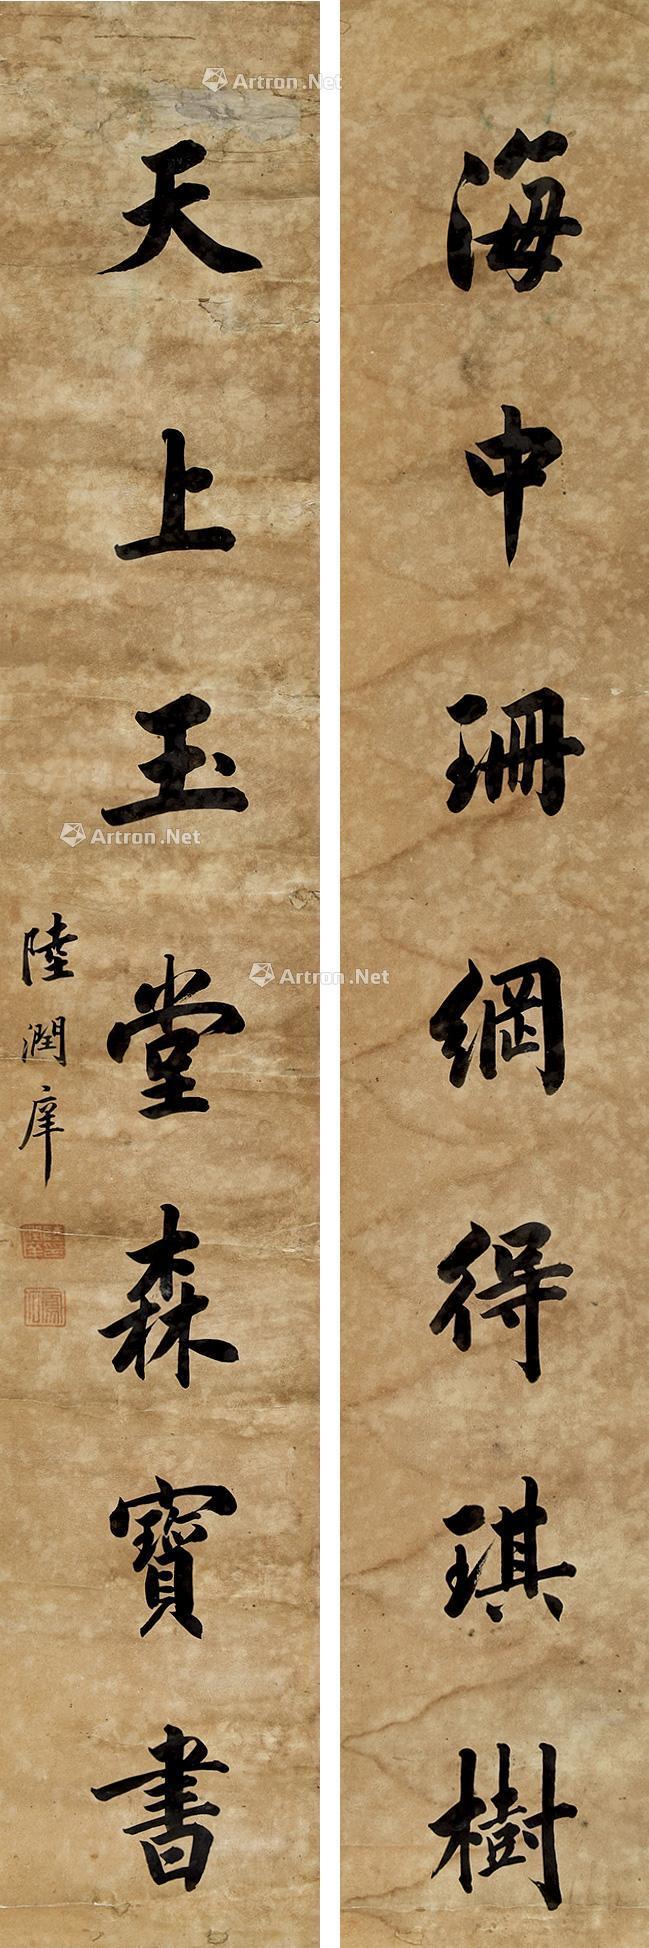 海中珊網得琪樹
天上玉堂森寶書
陸潤庠
Artron.Net
Artron.Net
Artron.Net